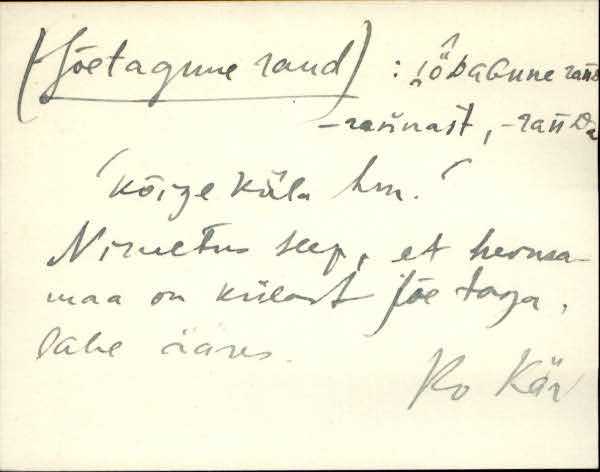 (Jõetagune rand) : jõDaGune rańD
-rańnast, -rańDa
'Kõige küla hm.'
Nimetus seep, et heinsa-
maa on külast jõe taga,
lahe ääres.
Ro Kär